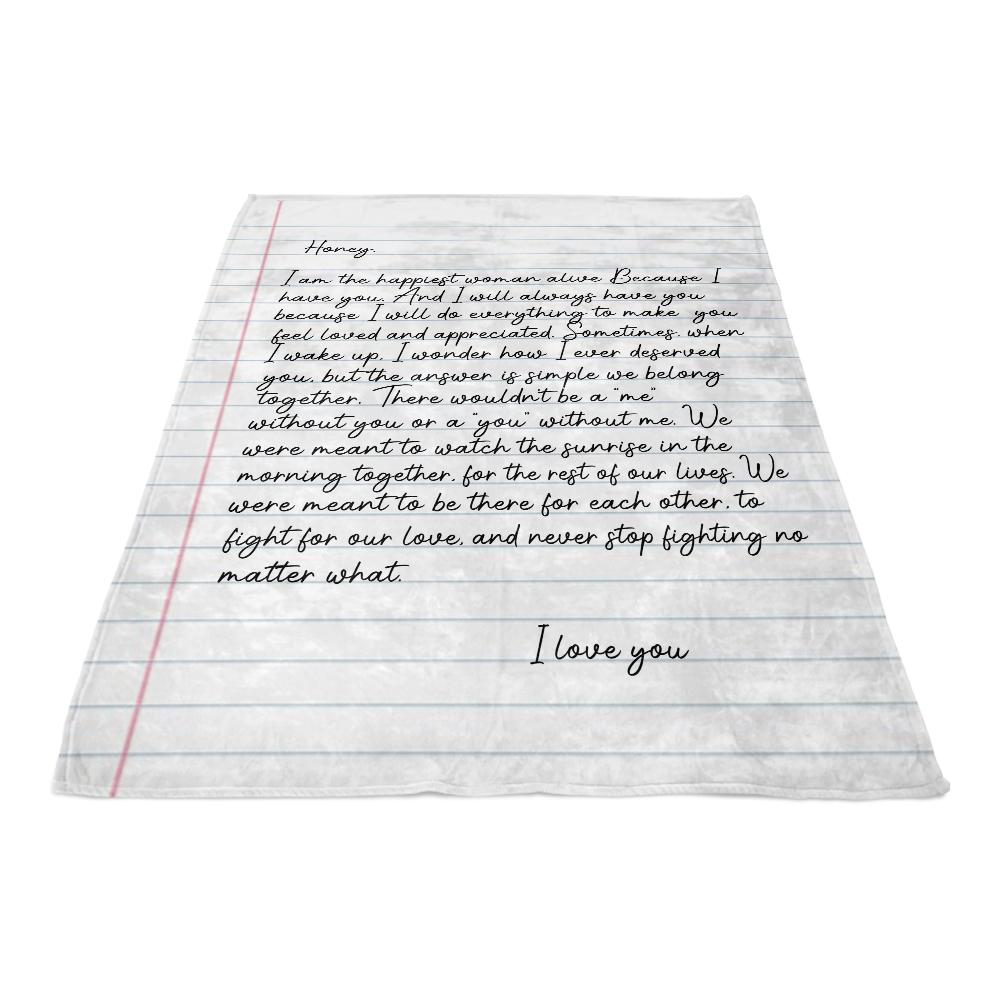 Honey,
I am the happiest woman alive Because I
have you. And I will always have you
because I will do everything to make you
feel loved and appreciated. Sometimes, when
I wake up, I wonder how I ever deserved
you, but the answer is simple we belong
together. There wouldn't be a "me"
without you or a "you" without me. We
were meant to watch the sunrise in the
morning together, for the rest of our lives. We
were meant to be there for each other, to
fight for our love, and never stop fighting no
matter what.
I love you